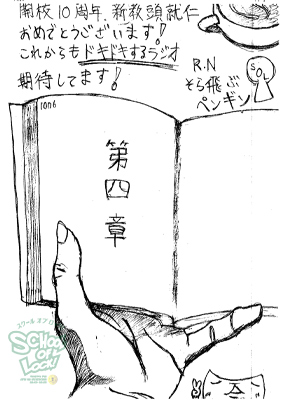 開校10周年、新教頭就任
おめでとうございます!
これからもドキドキするラジオ
期待してます!
R.N
そら飛ぶ
ペンギン
SOL
1006
第四章
スクールオブロック!
SCHOOL
OF
LOCK!